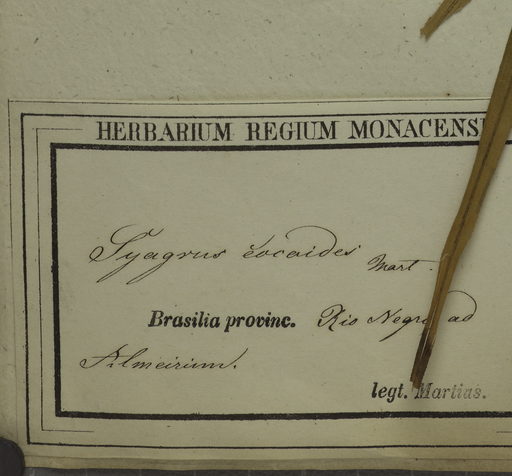 HERBARIUM REGIUM MONACENS
Syagrus cocoides Mart.
Brasilia provinc. Rio Negro ad
Almeirim.
legt. Martius.